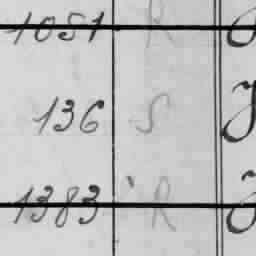 1051 R
136 S
1383 R